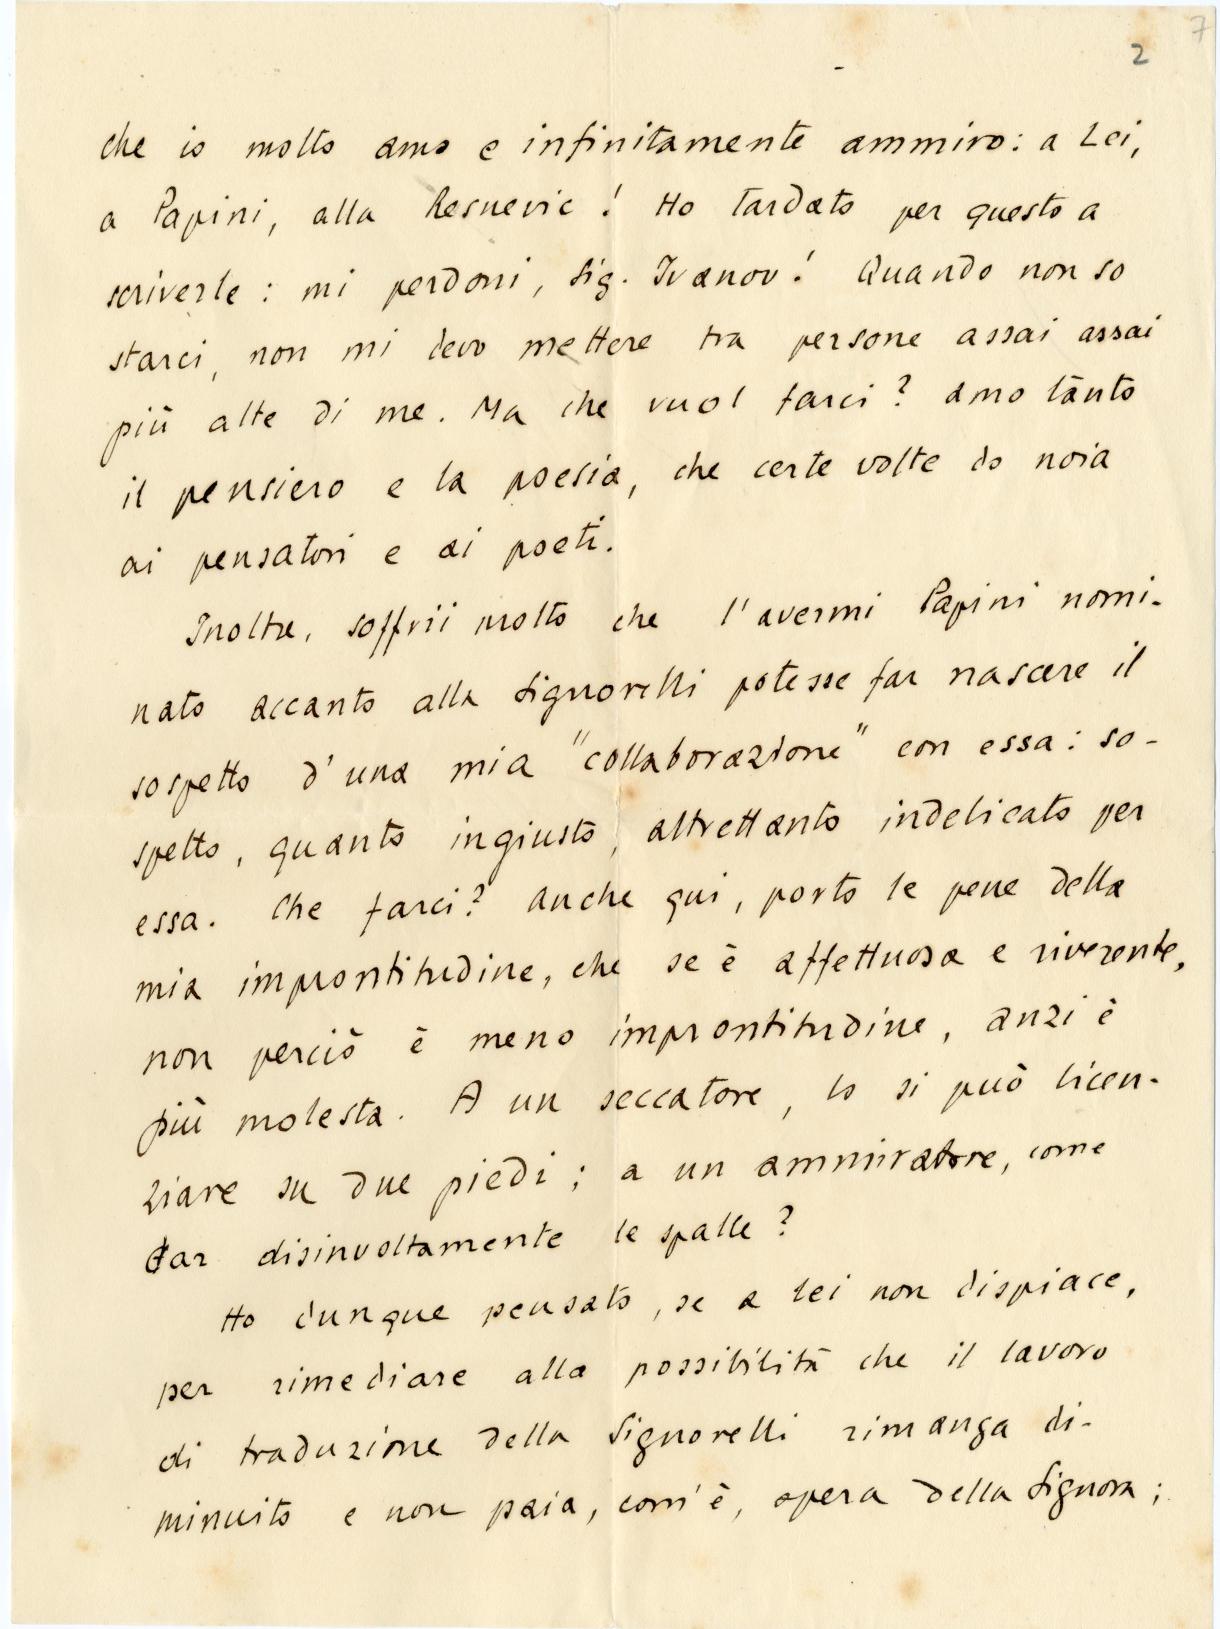 7
2
che io molto amo e infinitamente ammiro: a Lei,
a Papini, alla Resnevic! Ho tardato per questo a
scriverle: mi perdoni, Sig. Ivanov! Quando non so
starci, non mi devo mettere tra persone assai assai
più alte di me. Ma che vuol farci? Amo tanto
il pensiero e la poesia, che certe volte do noia
ai pensatori e ai poeti.
Inoltre, soffrii molto che l'avermi Papini nomi-
nato accanto alla Signorelli potesse far nascere il
sospetto d'una mia "collaborazione" con essa: so-
spetto, quanto ingiusto, altrettanto indelicato per
essa. Che farci? Anche qui, porto le pene della
mia improntitudine, che se è affettuosa e riverente,
non perciò è meno improntitudine, anzi è
più molesta. A un seccatore, lo si può licen-
ziare su due piedi; a un ammiratore, come
dar disinvoltamente le spalle?
Ho dunque pensato, se a lei non dispiace,
per rimediare alla possibilità che il lavoro
di traduzione della Signorelli rimanga di-
minuito e non paia, com'è, opera della Signora;